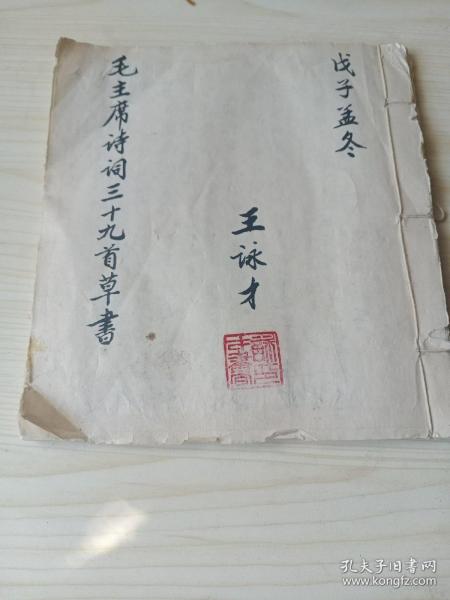 戊子孟冬
王詠才
毛主席诗词三十九首草書
孔夫子旧书网
www.kongfz.com